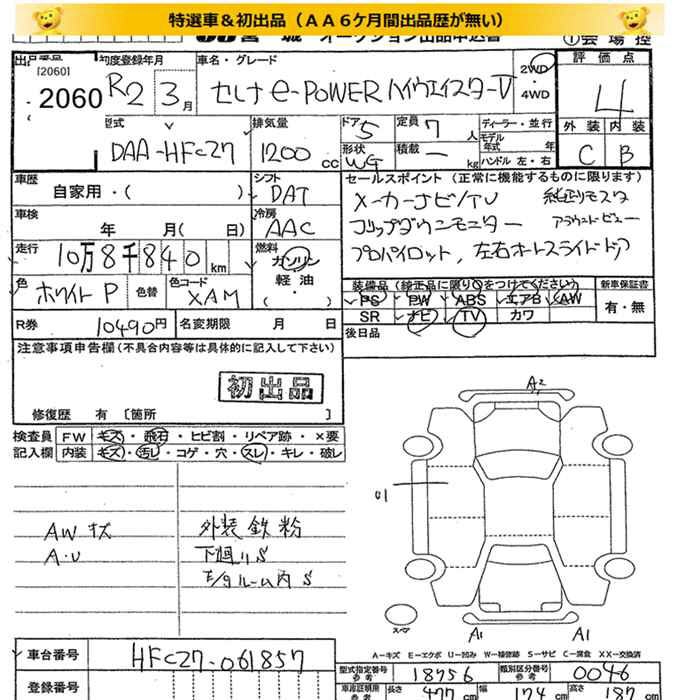 特選車＆初出品（ＡＡ６ケ月間出品歴が無い）
出品番号 [20601] 2060
初度登録年月 R2 3月
車名・グレード セレナ e-POWER ハイウェイスターV
2WD・4WD
評価点 4
外装 内装
C B
型式 DAA-HFC27
排気量 1200cc
ドア 5
形状 WG
定員 7人
積載 ー kg
ディーラー・並行
モデル年式 年式
ハンドル 左・右
車歴 自家用・( )
シフト DAT
セールスポイント（正常に機能するものに限ります）
メーカーナビ/TV 純正リモスタ
フリップダウンモニター アラウンドビュー
プロパイロット、左右オートスライドドア
車検 年 月(日)
冷房 AAC
走行 10万8千840km
燃料 ガソリン
軽油
( ・ )
色 ホワイトP 色替 色コード XAM
装備品（純正品に限り○をつけてください）
PS PW ABS エアB AW
SR ナビ TV カワ
新車保証書
有・無
R券 10490円 名変期限 月 日
後日品
注意事項申告欄（不具合内容等は具体的に記入して下さい）
初出品
修復歴 有 〔箇所 〕
検査員記入欄
FW キズ・飛石・ヒビ割・リペア跡・×要
内装 キズ・汚レ・コゲ・穴・スレ・キレ・破レ
AW キズ 外装鉄粉
A・U 下廻りS
E/gルーム内S
A2
U1
スペア
A1 A1
A－キズ E－エクボ U－凹み W－補修跡 S－サビ C－腐食 XX－交換済
車台番号 HFC27-061857
登録番号
型式指定番号 参考 18756
類別区分番号 参考 0046
車庫証明用 参考 長さ 477cm 幅 174cm 高さ 187cm